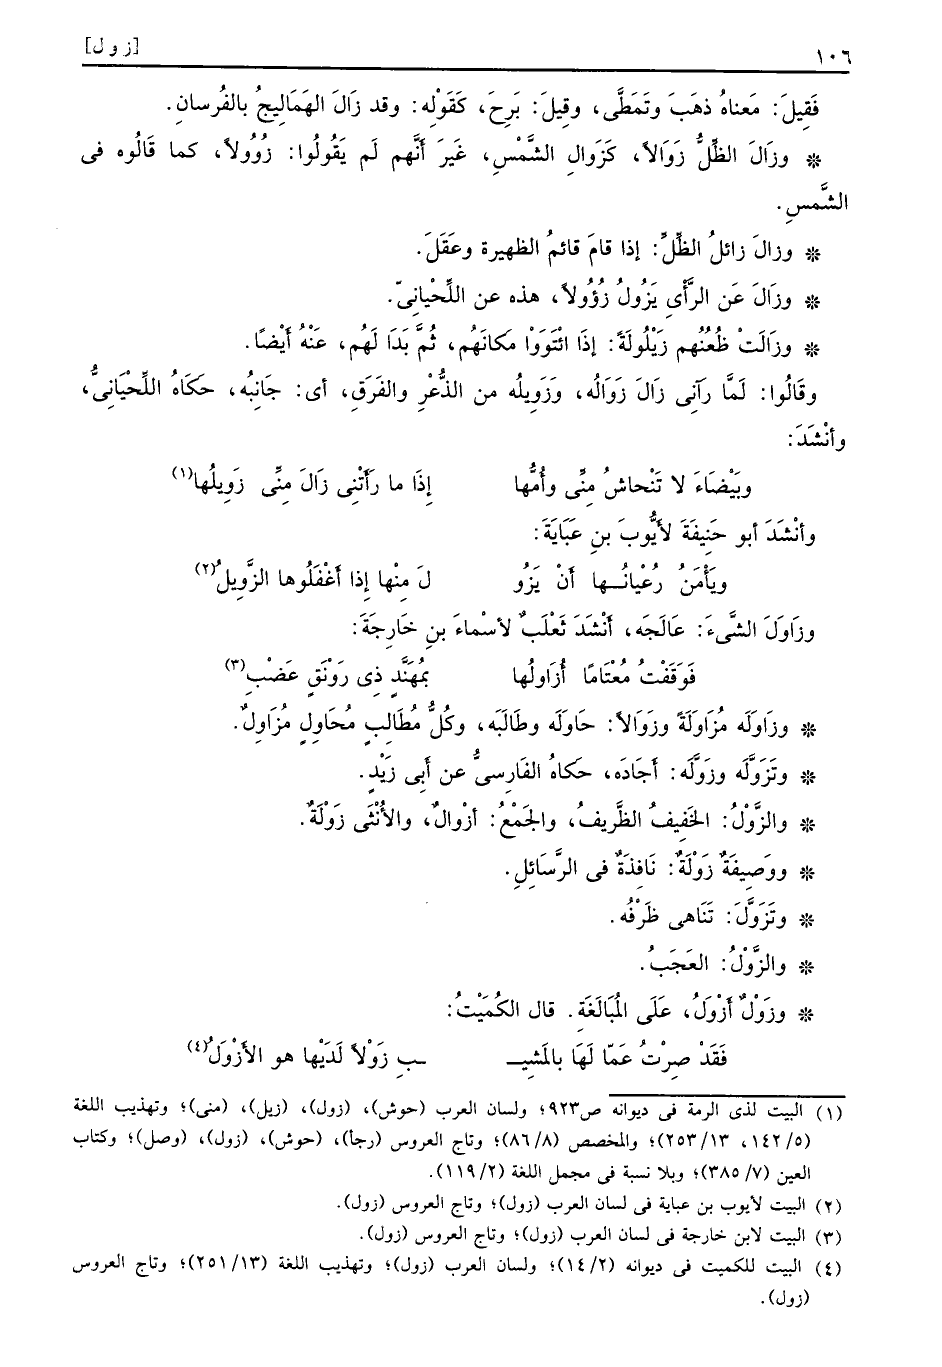 ١٠٦ [ز و ل]
فَقِيلَ: مَعناهُ ذهَبَ وتَمَطَّى، وقِيلَ: بَرِحَ، كَقَوْلِه: وقد زَالَ الهَمَالِيجُ بالفُرسانِ.
* وزَالَ الظِّلُّ زَوَالاً، كَزَوالِ الشَّمْسِ، غَيرَ أَنَّهم لَم يَقُولُوا: زُوُولاً، كما قَالُوه فى
الشَّمسِ.
* وزالَ زائلُ الظِّلِّ: إذا قامَ قائمُ الظهيرة وعَقَلَ.
* وزَالَ عَن الرَّأْىِ يَزُولُ زُؤُولاً، هذه عن اللِّحْيانىِّ.
* وزَالَتْ ظُعُنُهم زَيْلُولَةً: إذَا ائْتَوَوْا مكَانَهُم، ثُمَّ بَدَا لَهُم، عَنْهُ أَيْضًا.
وقَالُوا: لَمَّا رَآنِى زَالَ زَوَالُه، وَزَوِيلُه من الذُّعْرِ والفَرَقِ، أى: جَانِبُه، حَكَاهُ اللِّحْيَانِىُّ،
وأنْشَدَ:
وبَيْضَاءَ لا تَنْحاشُ مِنِّى وأُمُّها إذَا ما رَأَتْنِى زَالَ مِنِّى زَوِيلُها(١)
وأنْشَدَ أبو حَنِيفَةَ لأيُّوبَ بنِ عَبَايَةَ:
ويَأْمَنُ رُعْيانُــها أنْ يَزُو لَ مِنْها إذا أغْفَلُوها الزَّوِيلُ(٢)
وزَاوَلَ الشَّىءَ: عَالَجَه، أنْشَدَ ثَعْلَبٌ لأسْماءَ بنِ خَارِجَةَ:
فَوَقَفْتُ مُعْتَامًا أُزَاوِلُها بمُهَنَّدٍ ذِى رَوْنَقٍ عَضْبِ(٣)
* وزَاوَلَه مُزَاوَلَةً وزِوَالاً: حَاوَلَه وطَالَبَه، وكُلُّ مُطَالِبٍ مُحَاوِلٍ مُزَاوِلٌ.
* وتَزَوَّلَه وزوَّلَه: أجَادَه، حَكاهُ الفَارِسىُّ عن أبى زَيْدٍ.
* والزَّوْلُ: الخَفِيفُ الظَّرِيفُ، والجَمْعُ: أزْوالٌ، والأُنْثَى زَوْلَةٌ.
* ووَصِيفَةٌ زَوْلَةٌ: نَافِذَةٌ فى الرَّسَائلِ.
* وتَزَوَّلَ: تَنَاهى ظَرْفُه.
* والزَّوْلُ: العَجَبُ.
* وزَوْلٌ أزْوَلُ، عَلَى المُبَالَغَةِ. قال الكُمَيْتُ:
فَقَدْ صِرْتُ عَمّا لَهَا بالمَشِيـــ ــبِ زَوْلاً لَدَيْها هو الأزْوَلُ(٤)
(١) البيت لذى الرمة فى ديوانه ص٩٢٣؛ ولسان العرب (حوش)، (زول)، (زيل)، (منى)؛ وتهذيب اللغة
(٥/ ١٤٢، ١٣/ ٢٥٣)؛ والمخصص (٨/ ٨٦)؛ وتاج العروس (رجأ)، (حوش)، (زول)، (وصل)؛ وكتاب
العين (٧/ ٣٨٥)؛ وبلا نسبة فى مجمل اللغة (٢/ ١١٩).
(٢) البيت لأيوب بن عباية فى لسان العرب (زول)؛ وتاج العروس (زول).
(٣) البيت لابن خارجة فى لسان العرب (زول)؛ وتاج العروس (زول).
(٤) البيت للكميت فى ديوانه (٢/ ١٤)؛ ولسان العرب (زول)؛ وتهذيب اللغة (١٣/ ٢٥١)؛ وتاج العروس
(زول).